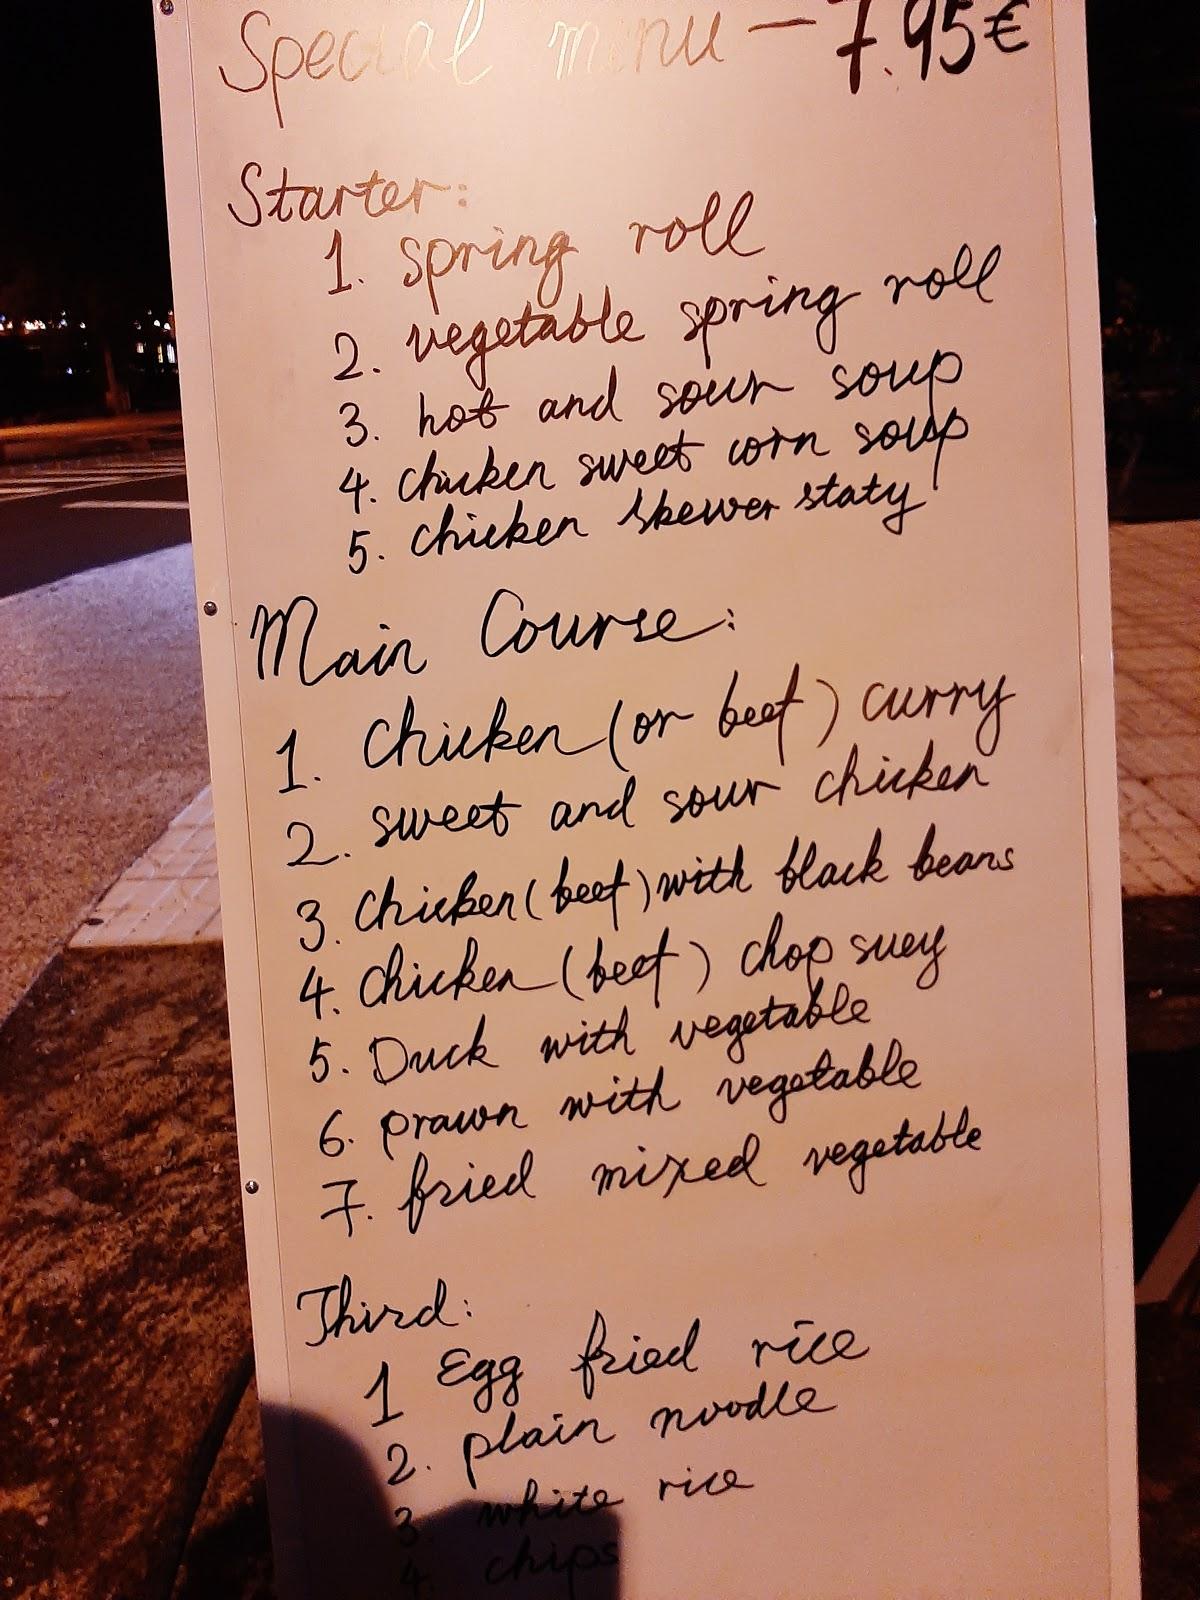 Special minu — 7.95€
Starter:
1. spring roll
2. vegetable spring roll
3. hot and sour soup
4. chicken sweet corn soup
5. chicken skewer staty
Main Course:
1. chicken (or beef) curry
2. sweet and sour chicken
3. chicken (beef) with black beans
4. chicken (beef) chop suey
5. Duck with vegetable
6. prawn with vegetable
7. fried mixed vegetable
Third:
1 Egg fried rice
2. plain noodle
3. white rice
4. chips